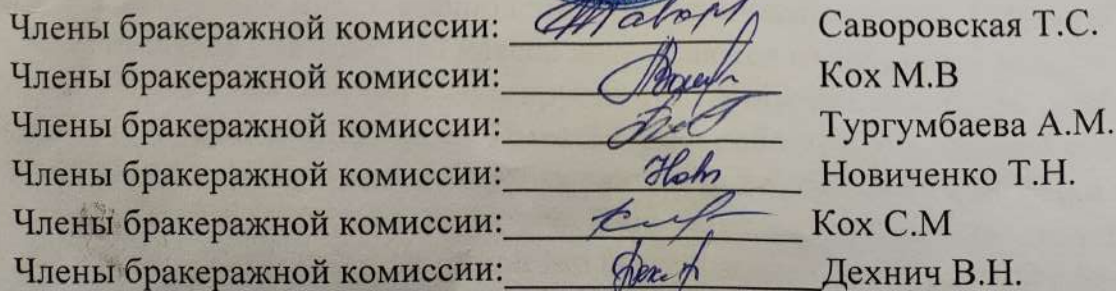 Члены бракеражной комиссии: Саворовская Т.С.
Члены бракеражной комиссии: Кох М.В
Члены бракеражной комиссии: Тургумбаева А.М.
Члены бракеражной комиссии: Новиченко Т.Н.
Члены бракеражной комиссии: Кох С.М
Члены бракеражной комиссии: Дехнич В.Н.